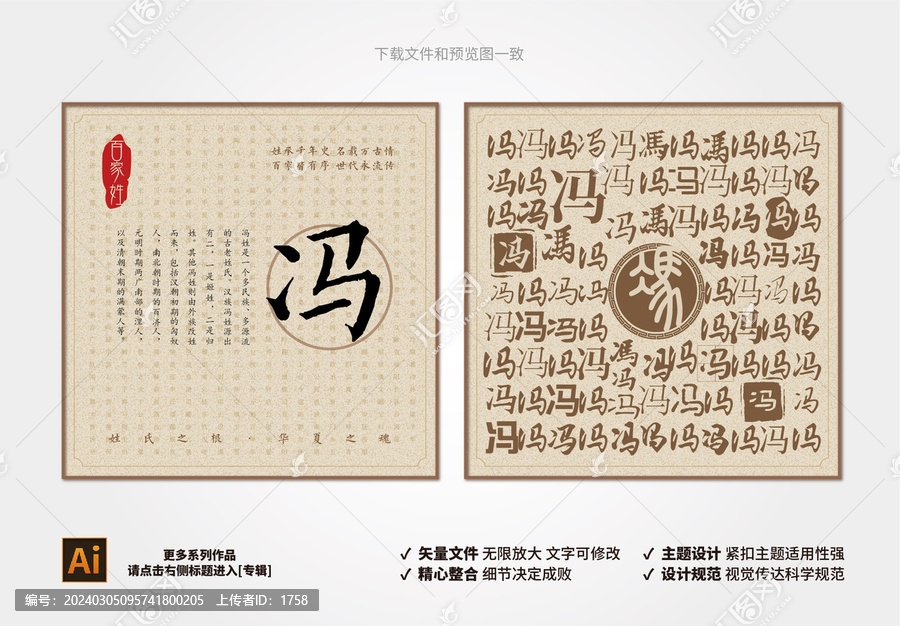 下载文件和预览图一致
百家姓
姓承千年史 名载万古情
百家皆有序 世代永流传
冯
冯姓是一个多民族、多源流
的古老姓氏，汉族冯姓源出
有二，一是姬姓，二是归
姓。其他冯姓则由外族改姓
而来，包括汉朝初期的匈奴
人，南北朝时期的百济人，
元明时期两广南部的俚人，
以及清朝末期的满蒙人等。
姓氏之根·华夏之魂
冯冯冯冯冯馮冯馮冯冯冯
冯冯冯冯冯冯冯冯冯冯
冯冯冯馮冯冯冯冯冯
冯馮冯馮冯冯冯冯
冯冯冯冯冯冯冯冯
冯冯冯冯冯冯冯冯
冯冯冯冯馮冯冯冯冯冯冯
冯冯冯冯冯冯冯冯冯冯
冯冯冯冯冯冯冯冯冯冯冯
Ai
更多系列作品
请点击右侧标题进入[专辑]
✓ 矢量文件 无限放大 文字可修改
✓ 精心整合 细节决定成败
✓ 主题设计 紧扣主题适用性强
✓ 设计规范 视觉传达科学规范
编号：20240305095741800205 上传者ID：1758